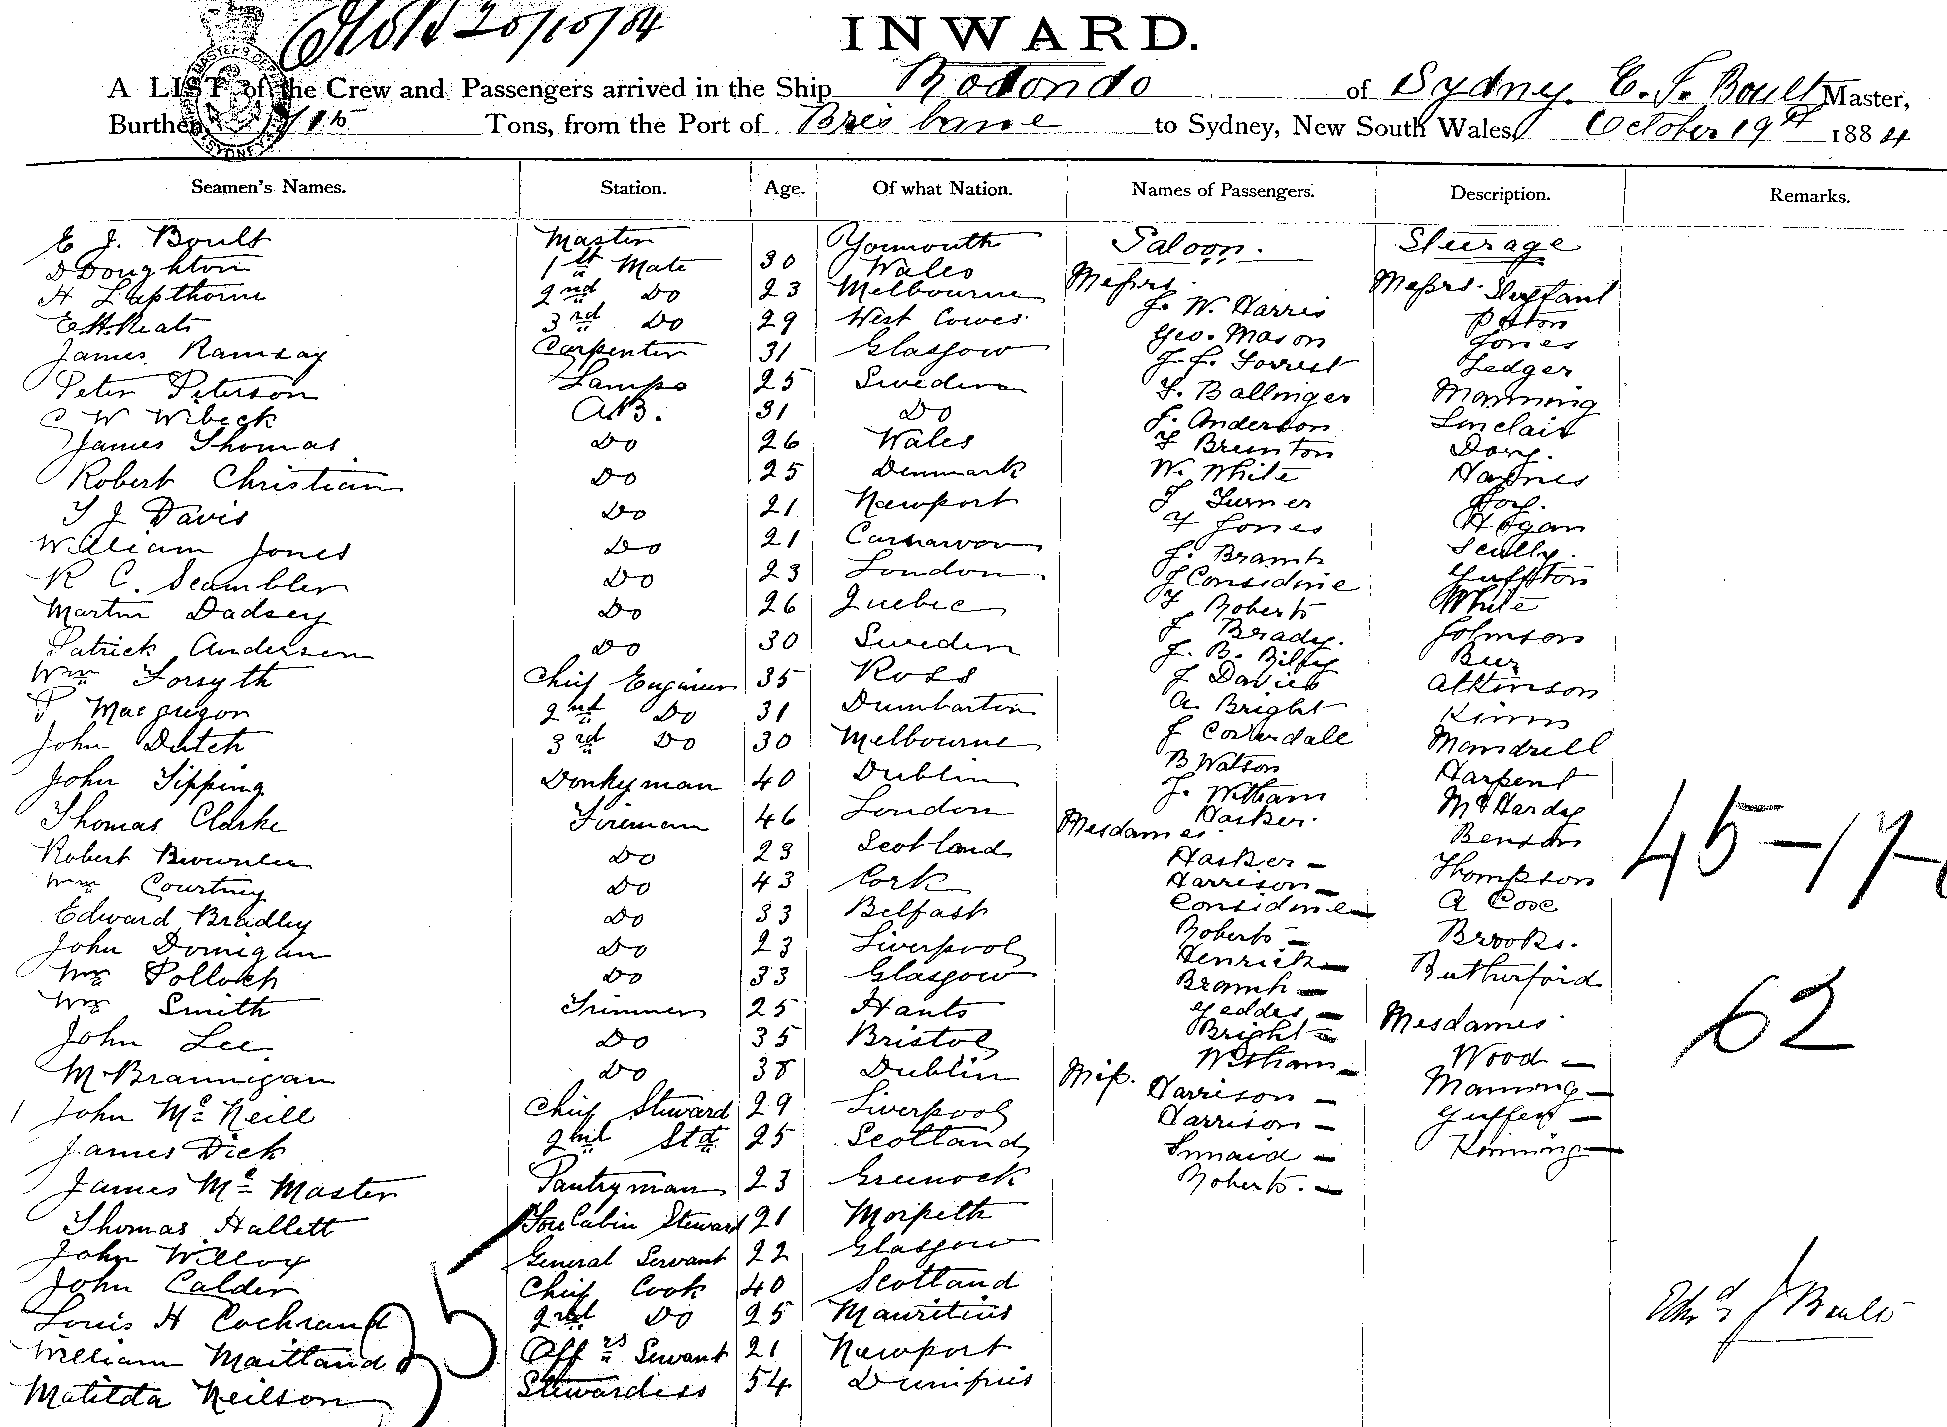 20/10/84
INWARD.
A LIST of the Crew and Passengers arrived in the Ship Rodondo of Sydney. E. J. Boult Master,
Burthen Tons, from the Port of Brisbane to Sydney, New South Wales, October 19th 1884
Seamen's Names. Station. Age. Of what Nation. Names of Passengers. Description. Remarks.
E J. Boult Master Yormouth Saloon. Steerage
D Doughton 1st Mate 30 Wales Messrs. Messrs.
H Lapthorne 2nd Do 23 Melbourne J. W. Harris
E H. Keats 3rd Do 29 West Cowes Geo. Mason Pitton
James Ramsay Carpenter 31 Glasgow J. F. Forrest Jones
Peter Peterson Lamps 25 Sweden F. Ballinger Ledger
C W Wibeck A.B. 31 Do J. Anderson Manning
James Thomas Do 26 Wales Brunton Sinclair
Robert Christian Do 25 Denmark W. White Dory.
T J Davis Do 21 Newport Turner Haynes
William Jones Do 21 Carnarvon Jones Hogan
R C. Scambler Do 23 London J. Bramh Scully.
Martin Dadsey Do 26 Quebec J Considine
Patrick Andersen Do 30 Sweden Roberts White
Wm Forsyth Chief Engineer 35 Ross Brady. Johnson
P Macgregor 2nd Do 31 Dumbarton J. B. Bilby
John Dutch 3rd Do 30 Melbourne J Davies Atkinson
John Tipping Donkyman 40 Dublin A. Bright
Thomas Clarke Fireman 46 London J Coverdale Mandrell
Robert Brownlee Do 23 Scotland B Watson Harpent
Wm Courtney Do 43 Cork J. Witham McHardy
Edward Bradley Do 33 Belfast Hasker. Benson
John Donigan Do 23 Liverpool Mesdames. Thompson
Wm Pollock Do 33 Glasgow Hasker - A Cose
Wm Smith Trimmer 25 Hants Harrison - Brooks.
John Lee Do 35 Bristol Considine - Rutherford
M Brannigan Do 38 Dublin Roberts - Mesdames
1 John McNeill Chief Steward 29 Liverpool Henrich - Wood -
James Dick 2nd Std 25 Scotland Bramh - Manning -
James McMaster Pantryman 23 Greenock Geddes -
Thomas Hallett Fore Cabin Steward 21 Morpeth Bright - Kinning -
John Willox General Servant 22 Glasgow Witham -
John Calder Chief Cook 40 Scotland Miss. Harrison -
Louis H Cochrane 2nd Do 25 Mauritius Harrison -
William Maitland Offrs Servant 21 Newport
Matilda Neilson Stewardess 54 Dumfries Roberts. -
35
45-17-
62
J Boult